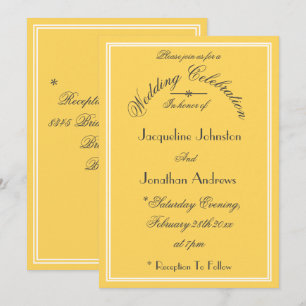 Please join us for a
Wedding Celebration
*
In honor of
Jacqueline Johnston
And
Jonathan Andrews
*Saturday Evening,
February 28th 20xx
at 7pm
* Reception To Follow
*
Reception
8345 Bri
B
B